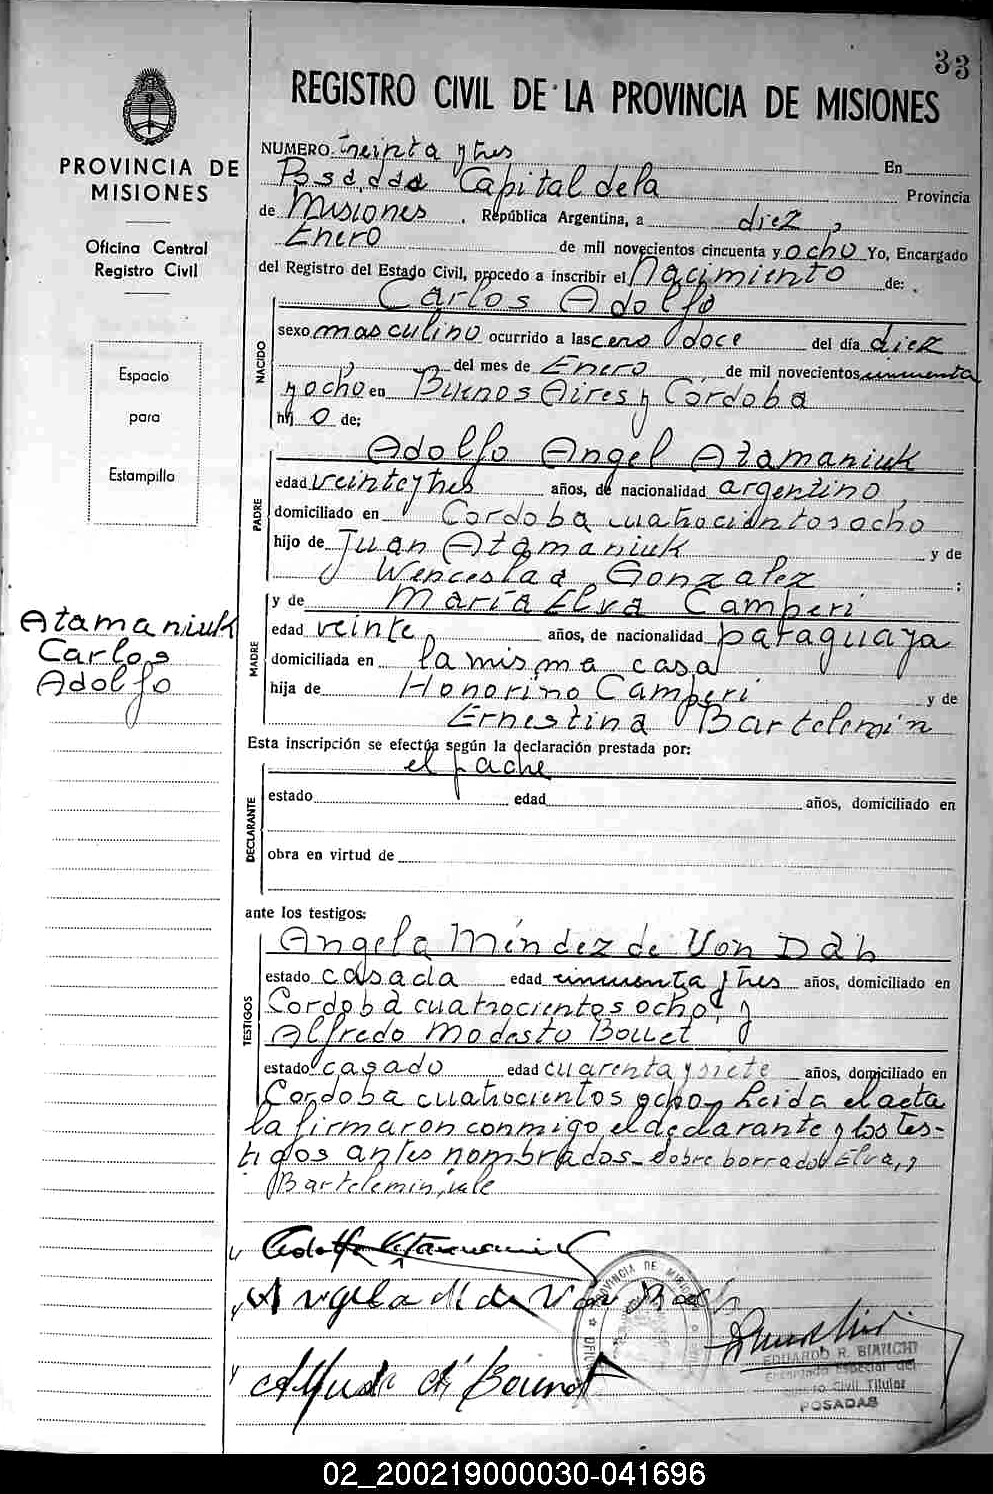 33
REGISTRO CIVIL DE LA PROVINCIA DE MISIONES
PROVINCIA DE
MISIONES
Oficina Central
Registro Civil
Espacio
para
Estampilla
Atamaniuk
Carlos
Adolfo
NUMERO treinta y tres En
Posadas Capital de la Provincia
de Misiones, República Argentina, a diez,
Enero de mil novecientos cincuenta y ocho Yo, Encargado
del Registro del Estado Civil, procedo a inscribir el Nacimiento de:
NACIDO
Carlos Adolfo
sexo masculino ocurrido a las cero doce del día diez
del mes de Enero de mil novecientos cincuenta
y ocho en Buenos Aires y Córdoba
hij o de:
PADRE
Adolfo Angel Atamaniuk
edad veinte y tres años, de nacionalidad argentino,
domiciliado en Cordoba cuatrocientos ocho
hijo de Juan Atamaniuk y de
Wenceslada Gonzalez ;
MADRE
y de María Elva Camperi
edad veinte, años, de nacionalidad paraguaya
domiciliada en la misma casa
hija de Honorino Camperi y de
Ernestina Bartelemin
Esta inscripción se efectúa según la declaración prestada por:
DECLARANTE
el padre
estado edad años, domiciliado en
obra en virtud de
ante los testigos:
TESTIGOS
Angela Méndez de Von Dah
estado casada edad cincuenta y tres años, domiciliado en
Cordoba cuatrocientos ocho, y
Alfredo Modesto
estado casado edad cuarenta y siete años, domiciliado en
Cordoba cuatrocientos ocho. Leida el acta
la firmaron conmigo, el declarante y los tes-
tigos antes nombrados. Sobre borrado: Elva, y
Bartelemin, vale
EDUARDO R. BIANCHI
Encargado Especial del
Registro Civil Titular
POSADAS
02_200219000030-041696